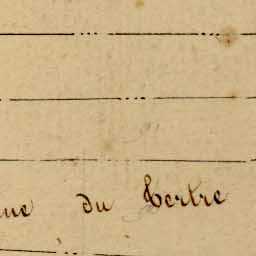 ue du Tertre